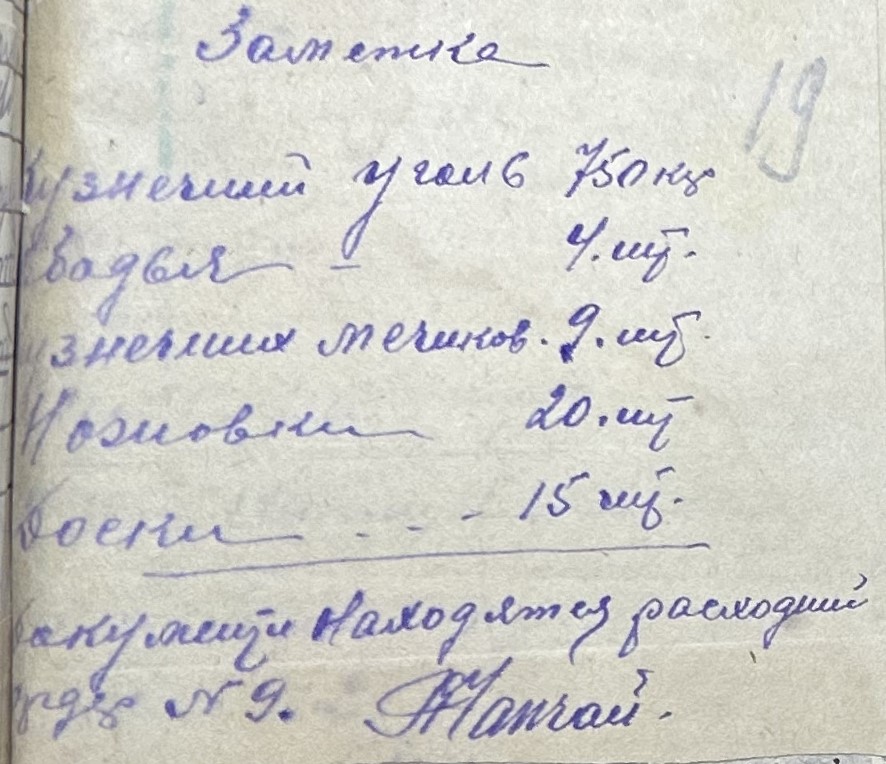 Заметка
19
Кузнечний уголь 750 кг
Бадья - 4. шт.
Кузнечних мечиков. 9. шт.
Ножовки 20. шт
Доски . - - 15 шт.
Документи находятся расходний
ордер № 9.